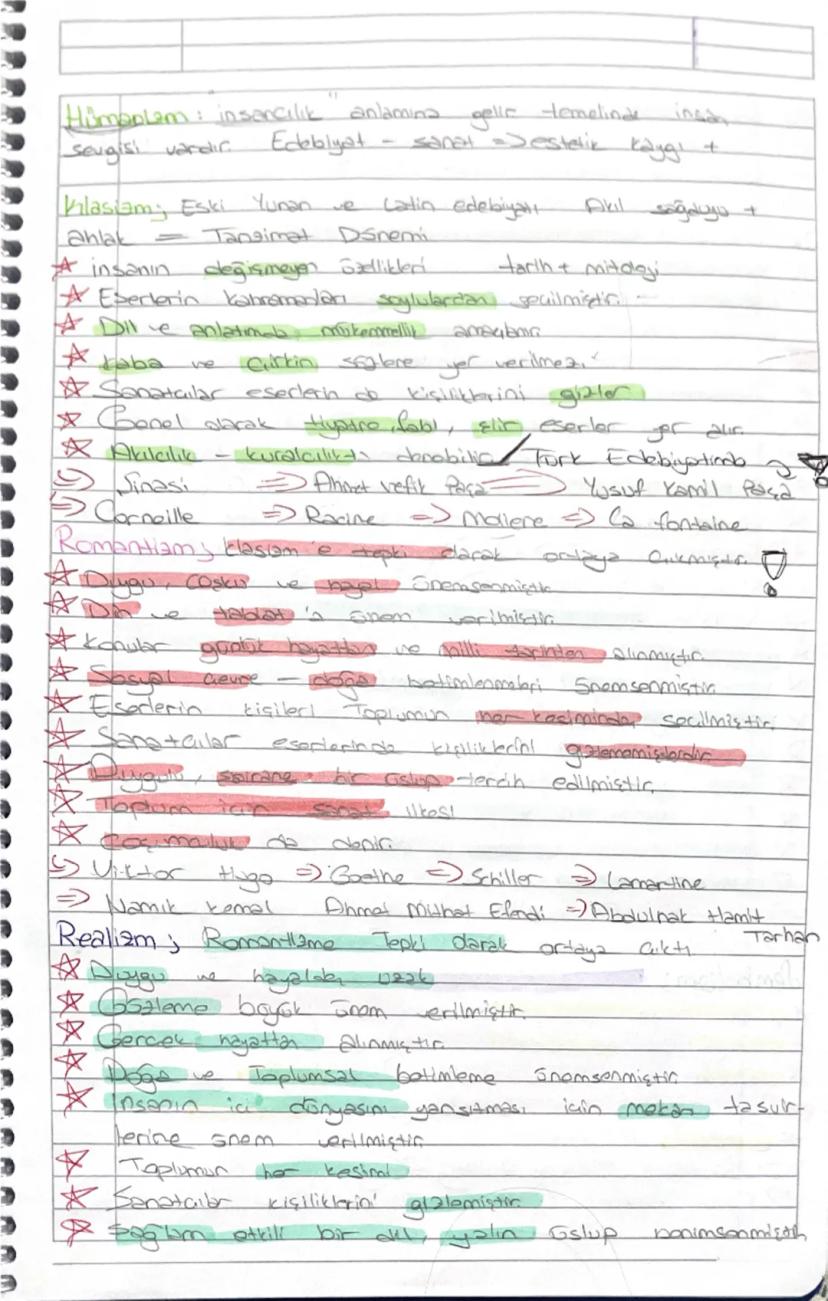 Hümanizm : "insancılık" anlamına gelir temelinde insan
sevgisi vardır. Edebiyat - sanat => estetik kaygı +
Klasizm; Eski Yunan ve Latin edebiyatı Akıl sağduyu +
ahlak = Tanzimat Dönemi
☆ insanın değişmeyen özellikleri tarih + mitoloji
☆ Eserlerin kahramanları soylulardan seçilmiştir.
☆ Dil ve anlatımda mükemmellik amaçlanır
☆ kaba ve çirkin sözlere yer verilmez.
☆ Sanatcılar eserlerin de kişiliklerini gizler
☆ Genel olarak tiyatro, fabl, şiir eserler yer alır.
☆ Akılcılık - kuralcılıktı denebilir Türk Edebiyatında
=> Şinasi => Ahmet Vefik Paşa => Yusuf Kamil Paşa
=> Corneille => Racine => Moliere => La fontaine
Romantizm; klasizm'e tepki olarak ortaya çıkmıştır.
☆ Duygu, coşku ve hayal önemsenmiştir
☆ Din ve tabiat'a önem verilmiştir.
☆ Konular günlük hayattan ve milli tarihten alınmıştır.
☆ Sosyal çevre - doğa betimlenmeleri önemsenmiştir.
☆ Eserlerin kişileri Toplumun her kesiminde seçilmiştir.
☆ Sanatcılar eserlerinde kişiliklerini gizlememişlerdir.
☆ Duygulu, şairane bir üslup tercih edilmiştir.
☆ Toplum için sanat ilkesi
☆ Coşumculuk da denir.
=> Viktor Hugo => Goethe => Schiller => Lamartine
=> Namık Kemal Ahmet Mithat Efendi => Abdulhak Hamit
Tarhan
Realizm ; Romantizme Tepki olarak ortaya çıktı
☆ Duygu ve hayalden uzak
☆ Gözleme büyük önem verilmiştir.
☆ Gercek hayattan alınmıştır.
☆ Doğa ve Toplumsal betimleme önemsenmiştir.
☆ İnsanın içi dünyasını yansıtması için mekan tasvir-
lerine önem verilmiştir.
☆ Toplumun her kesimi
☆ Sanatcılar kişiliklerini gizlemiştir.
☆ Sağlam etkili bir dil, yalın üslup benimsenmiştir.